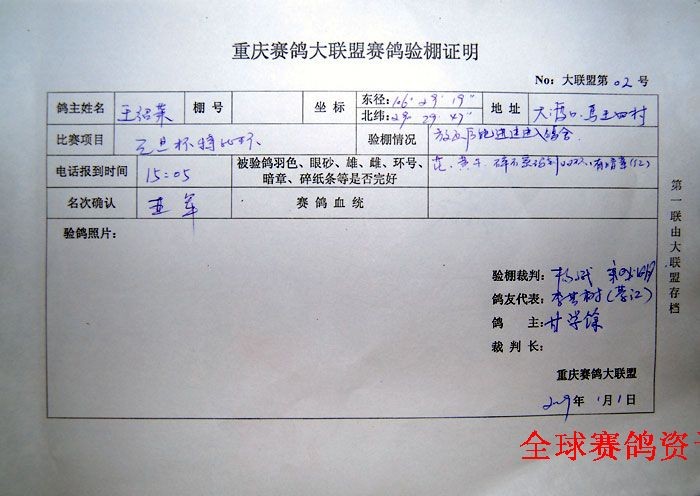 重庆赛鸽大联盟赛鸽验棚证明
No: 大联盟第 02 号
鸽主姓名 王绍莱 棚号 坐标 东径: 106°29′19″ 北纬: 29° 29 47″ 地址 大渡口.马王四村
比赛项目 元旦杯特比环 验棚情况 进入鸽舍
电话报到时间 15:05 被验鸽羽色、眼砂、雄、雌、环号、暗章、碎纸条等是否完好
名次确认 亚军 赛鸽血统
验鸽照片:
验棚裁判: 杨斌
鸽友代表: (綦江)
鸽 主: 甘学馀
裁判长:
重庆赛鸽大联盟
2009年 1月1日
第一联由大联盟存档
全球赛鸽资